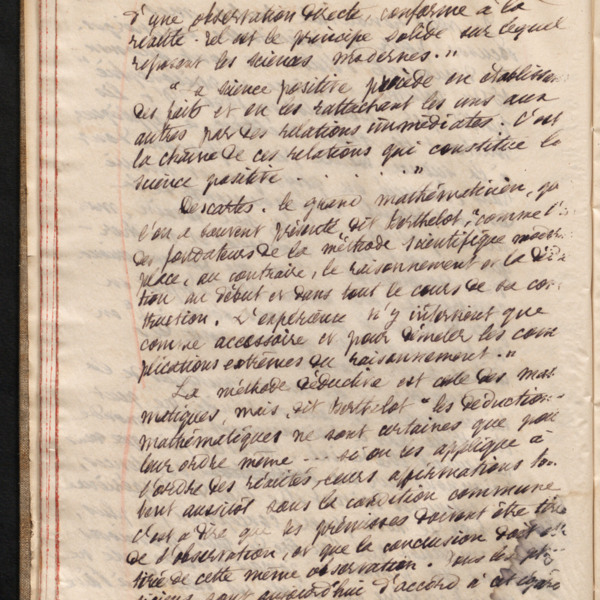 d'une observation directe, conforme à la
réalité. Tel est le principe solide sur lequel
reposent les sciences modernes."
" La science positive procède en établissant
des faits et en les rattachant les uns aux
autres par des relations immédiates. C'est
la chaîne de ces relations qui constitue la
science positive . . . . "
Descartes. le grand mathématicien, qu
l'on a souvent présenté dit Berthelot, "comme l'
des fondateurs de la méthode scientifique moderne
place, au contraire, le raisonnement et la
tion au début et dans tout le cours de sa cons
truction. L'expérience n'y intervient que
comme accessoire et pour démêler les com
plications extrêmes du raisonnement."
La méthode déductive est celle des mathé
matiques, mais, dit Berthelot " les déductions
mathématiques ne sont certaines que pour
leur ordre même --- si on les applique à
l'ordre des réalités, leurs affirmations tom
bent aussitôt sous la condition commune
c'est à dire que les prémisses doivent être tirées
de l'observation, et que la conclusion doit
tirée de cette même observation. Tous les phy
siciens sont aujourd'hui d'accord à cet égard